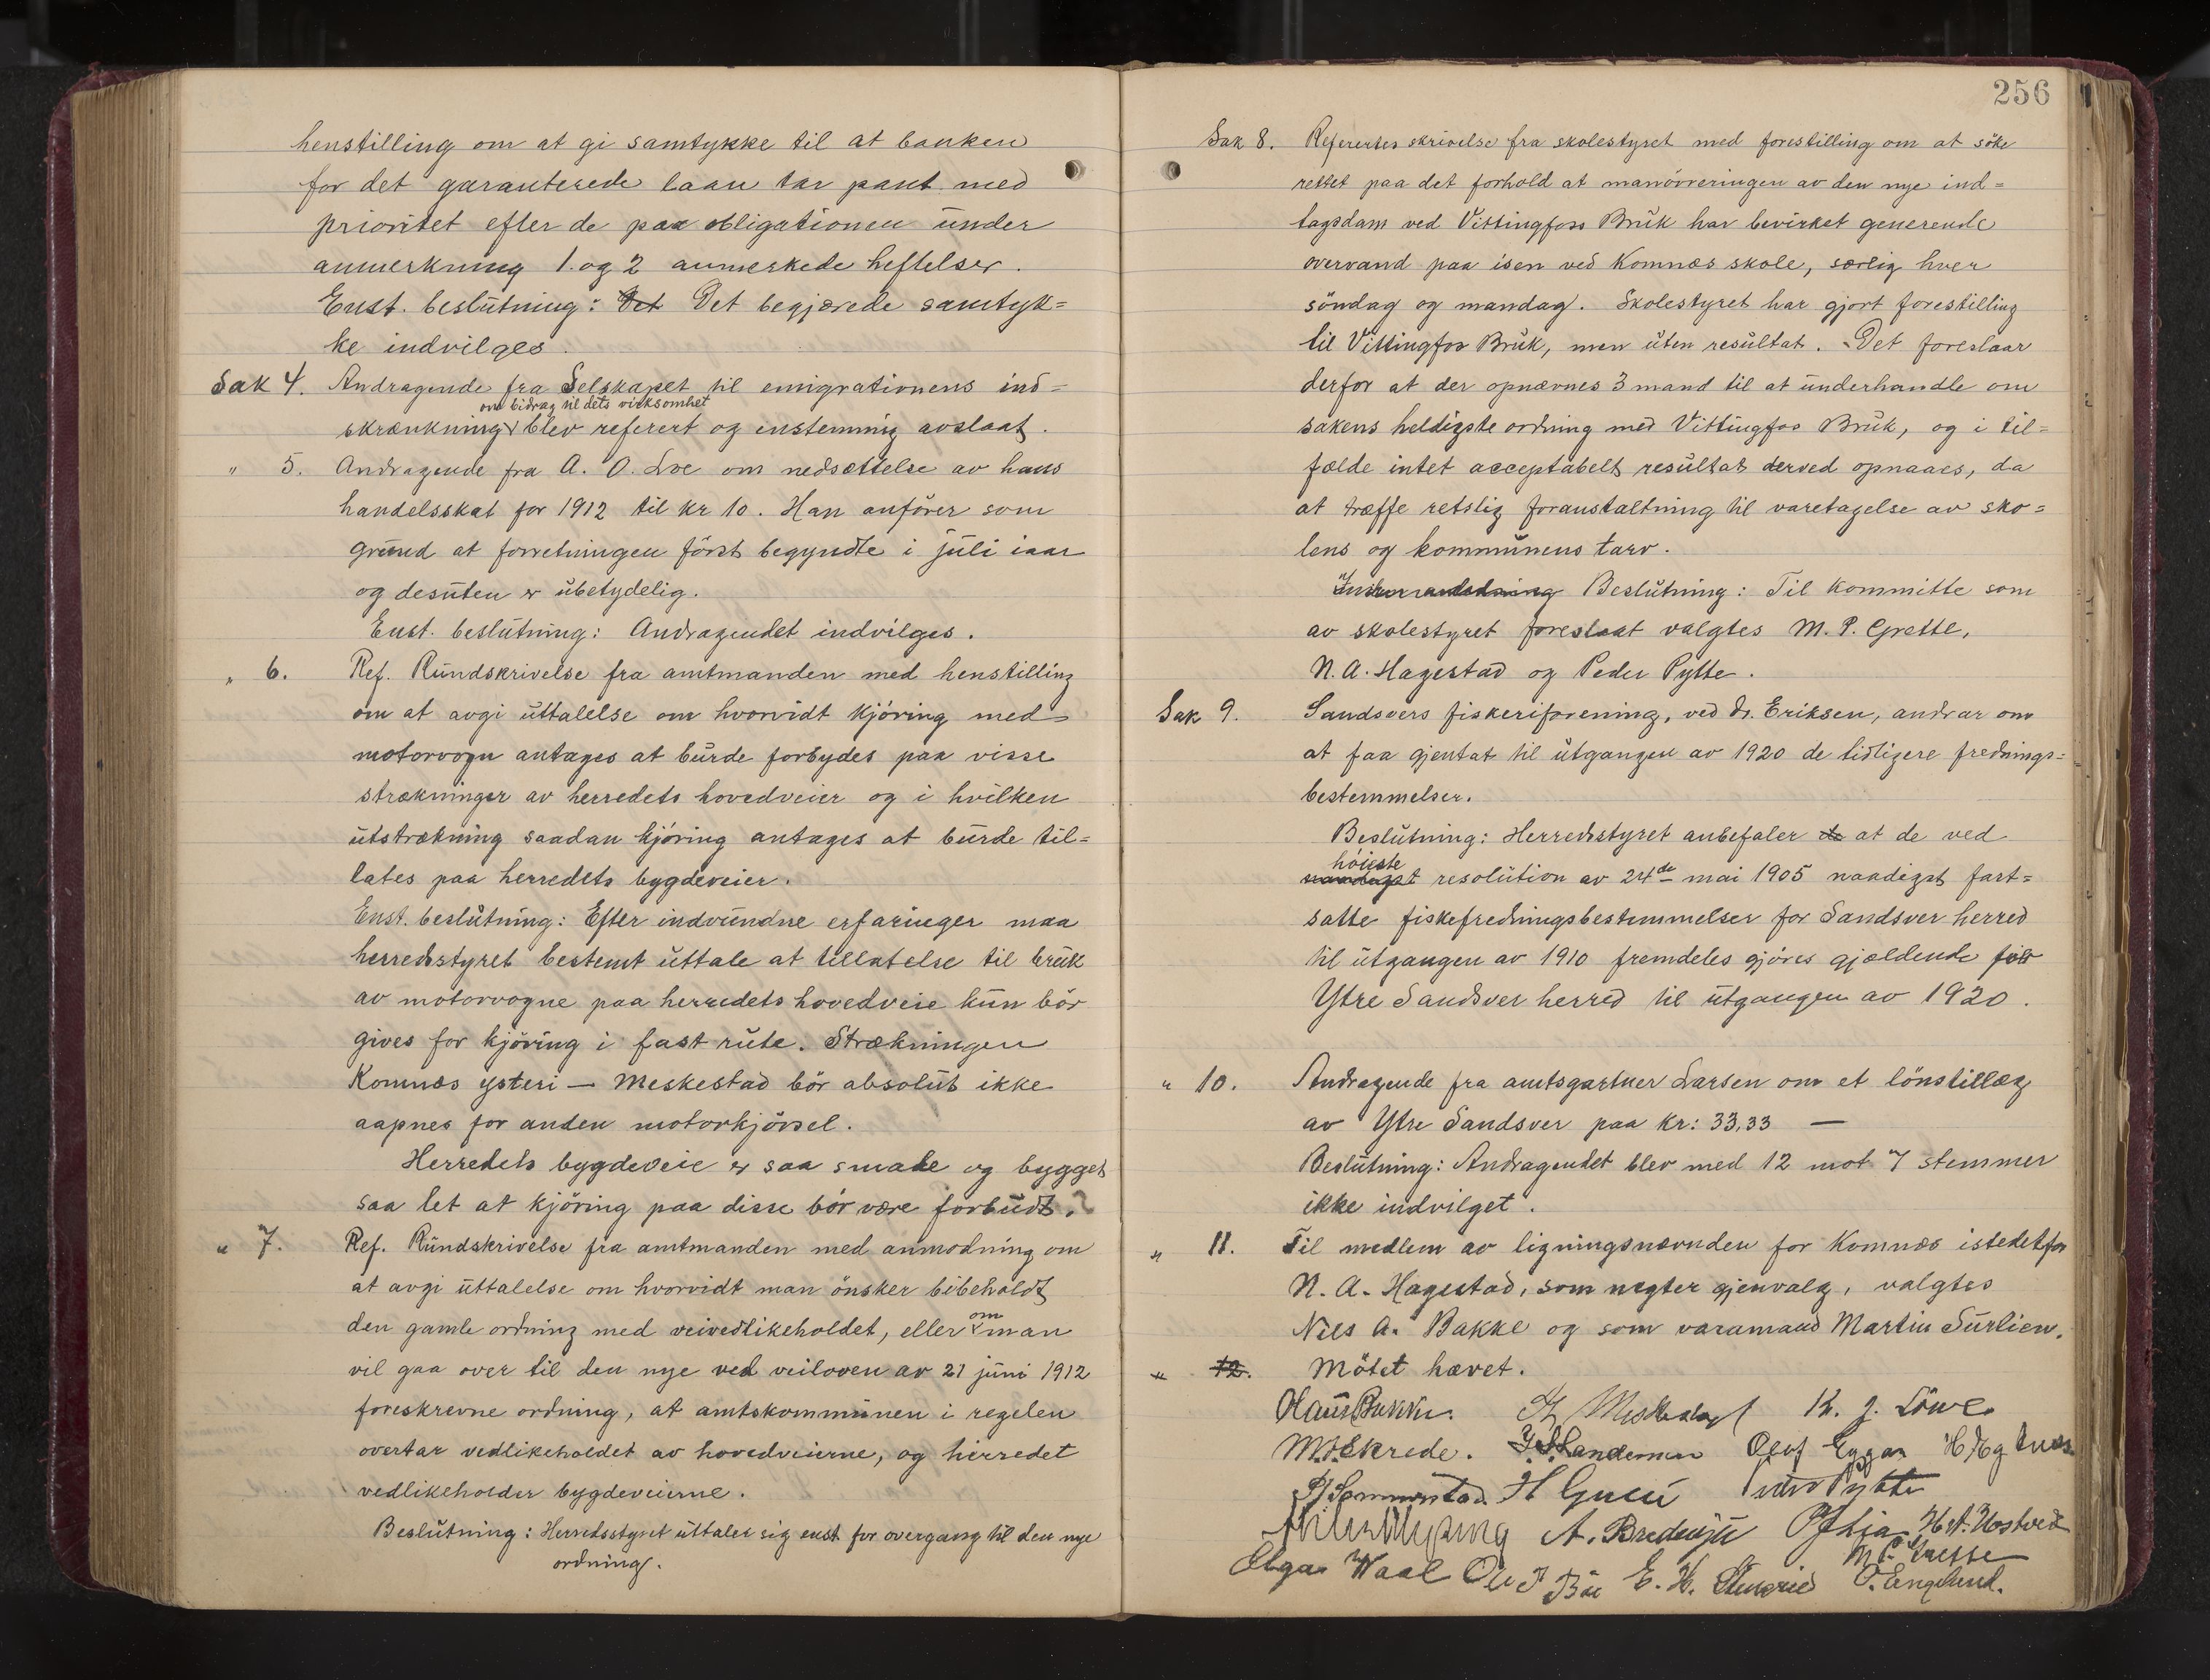 henstilling om at gi samtykke til at banken
for det garanterede laan tar pant med
prioritet efter de paa obligationen under
anmerkning 1. og 2 anmerkede heftelser.
Enst. beslutning: Det Det begjærede samtyk=
ke indvilges.
Sak 4. Andragende fra Selskapet til emigrationens ind=
om bidrag til dets virksomhet
skrænkning blev referert og enstemmig avslaat.
" 5. Andragende fra A. O. Loe om nedsættelse av hans
handelsskat for 1912 til kr 10. Han anförer som
grund at forretningen först begyndte i juli iaar
og desuten er ubetydelig.
Enst. beslutning: Andragendet indvilges.
" 6. Ref. Rundskrivelse fra amtmanden med henstilling
om at avgi uttalelse om hvorvidt kjöring med
motorvogn antages at burde forbydes paa visse
strækninger av herredets hovedveier og i hvilken
utstrækning saadan kjöring antages at burde til=
lates paa herredets bygdeveier.
Enst. beslutning: Efter indvundne erfaringer maa
herredsstyret bestemt uttale at tillatelse til bruk
av motorvogne paa herredets hovedveie kun bör
gives for kjöring i fast rute. Strækningen
Komnæs ysteri — Meskestad bör absolut ikke
aapnes for anden motorkjörsel.
Herredets bygdeveie er saa smale og bygget
saa let at kjöring paa disse bör være forbudt.
" 7. Ref. Rundskrivelse fra amtmanden med anmodning om
at avgi uttalelse om hvorvidt man önsker bibeholdt
den gamle ordning med veivedlikeholdet, eller om man
vil gaa over til den nye ved veiloven av 21 juni 1912
foreskrevne ordning, at amtskommunen i regelen
overtar vedlikeholdet av hovedveierne, og herredet
vedlikeholder bygdeveierne.
Beslutning: Herredsstyret uttaler sig enst. for overgang til den nye
ordning.
256
Sak 8. Referertes skrivelse fra skolestyret med forestilling om at söke
rettet paa det forhold at manövreringen av den nye ind=
tagsdam ved Vittingfoss Bruk har bevirket generende
overvand paa isen ved Komnæs skole, særlig hver
söndag og mandag. Skolestyret har gjort forestilling
til Vittingfos Bruk, men uten resultat. Det foreslaar
derfor at der opnævnes 3 mand til at underhandle om
sakens heldigste ordning med Vittingfos Bruk, og i til=
fælde intet acceptabelt resultat derved opnaaes, da
at træffe retslig foranstaltning til varetagelse av sko=
lens og kommunens tarv.
Beslutning: Til kommitte som
av skolestyret foreslaat valgtes M. P. Grette,
N. A. Hagestad og Peder Pytte.
Sak 9. Sandsvers fiskeriforening, ved dr. Eriksen, andrar om
at faa gjentat til utgangen av 1920 de tidligere frednings=
bestemmelser.
Beslutning: Herredsstyret anbefaler de at de ved
höieste
naadigst resolution av 24de mai 1905 naadigst fast=
satte fiskefredningsbestemmelser for Sandsver herred
til utgangen av 1910 fremdeles gjöres gjældende for
Ytre Sandsver herred til utgangen av 1920.
" 10. Andragende fra amtsgartner Larsen om et lönstillæg
av Ytre Sandsver paa kr: 33,33 —
Beslutning: Andragendet blev med 12 mot 7 stemmer
ikke indvilget.
" 11. Til medlem av ligningsnævnden for Komnæs istedetfor
N. A. Hagestad, som nægter gjenvalg, valgtes
Nils A. Bakke og som varamand Martin Surlien.
" 12. Mötet hævet.
Hans Bakke. Meskestad K. J. Löwe
M. H. Skrede. Olof Eggar
H Gunu Peder Pytte
A. Bredesju H. A. Hostved
M. P. Grette
Olga Waal Ole P Böe E. H. O. Englund.